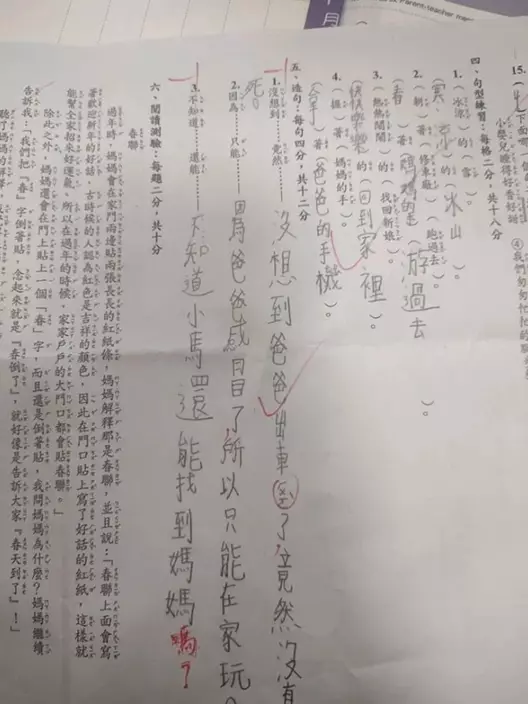 十月
Parent-teacher
15.
四、句型練習：每格二分，共十八分
1.（冰涼）的（雪）。
（冰山）。
2.（朝）著（修車廠）（跑過去）。
（看）著（媽媽的走）（游過去）。
3.（熱熱鬧鬧）的（找回新娘）。
（快快樂樂）的（回到家裡）。
4.（握）著（媽媽的手）。
（拿）著（爸爸的手機）。
五、造句：每句四分，共十二分
1.沒想到……竟然……沒想到爸爸出車了竟然沒有
死
2.因為……只能……因為爸爸感冒了所以只能在家玩。
3.不知道……還能……不知道小馬還能找到媽媽嗎？
六、閱讀測驗：每題二分，共十分
春聯
過年時，媽媽會在家門兩邊貼兩張長長的紅紙條，媽媽解釋那是春聯，並且說：「春聯上面會寫
著歡迎新年的好話，古時候的人認為紅色是吉祥的顏色，因此在門口貼上寫了好話的紅紙，這樣就
能幫全家招來好運氣，所以在過年的時候，家家戶戶的大門口都會貼春聯。」
除此之外，媽媽還會在門上貼上一個「春」字，而且還是倒著貼，我問媽媽為什麼？媽媽繼續
告訴我：「我們把『春』字倒著貼，念起來就是『春倒了』，就好像是告訴大家『春天到了』！」
聽了媽媽的